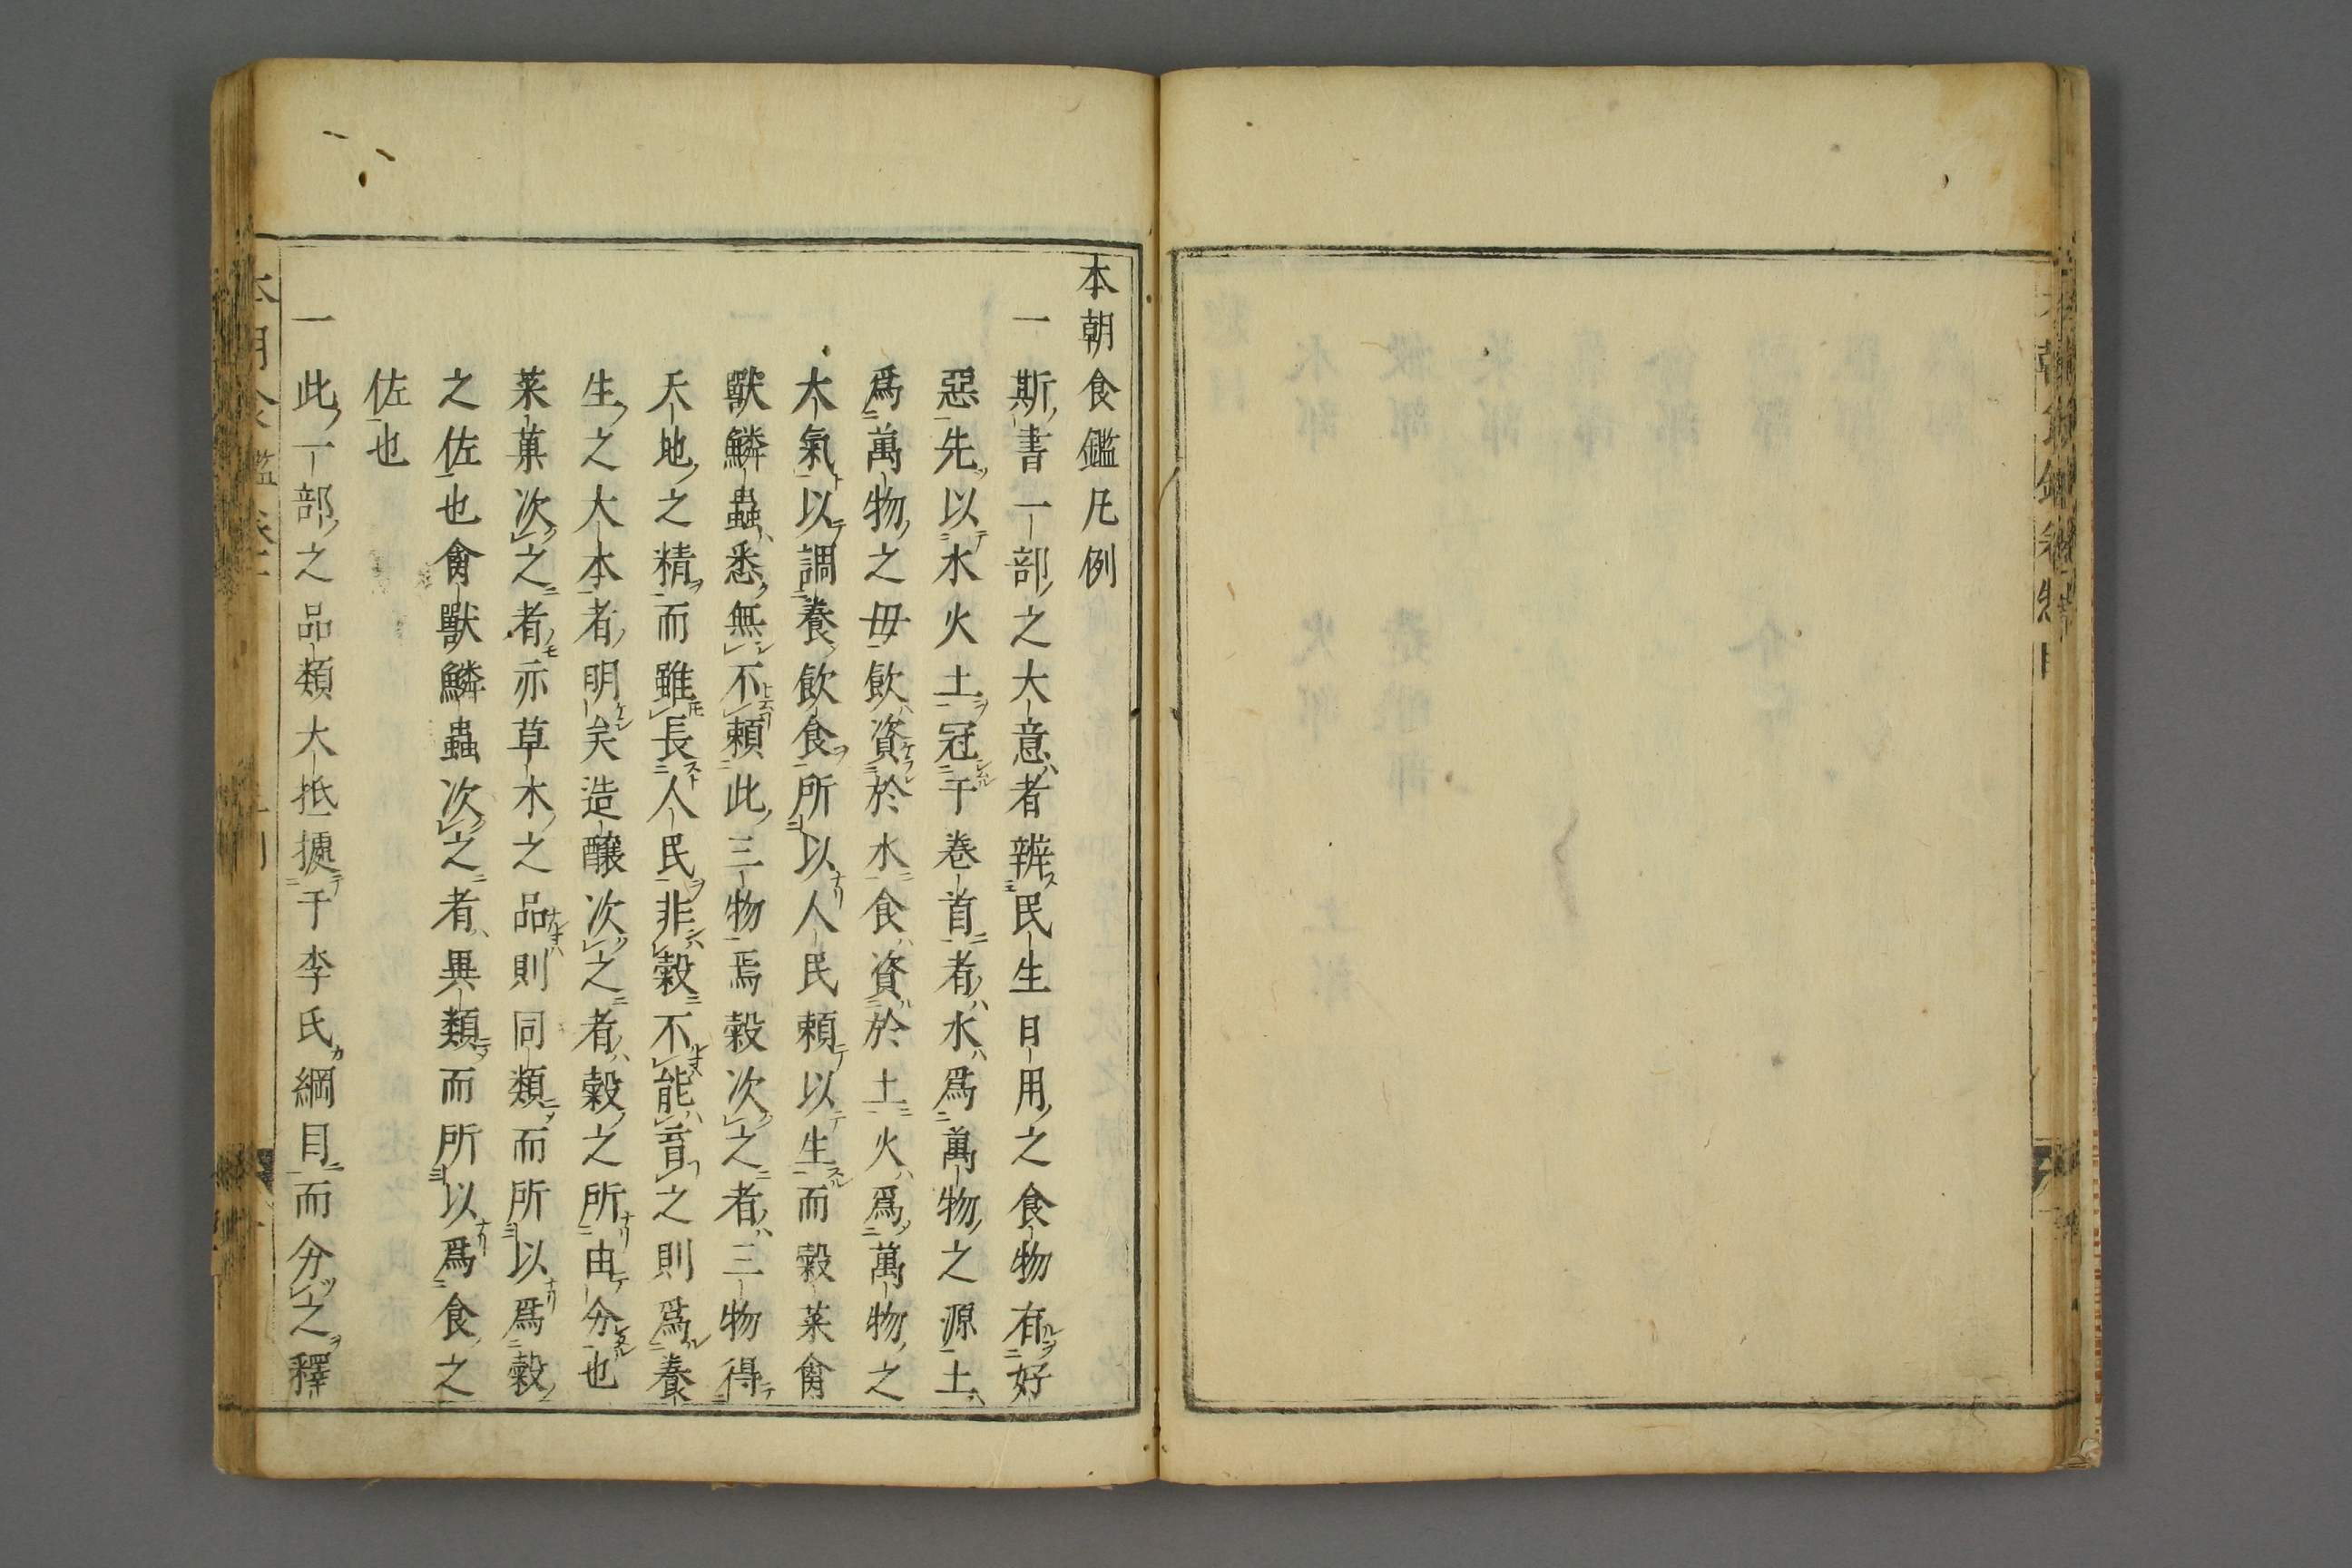 本朝食鑑凡例
一斯書一部之大意者辨民生日用之食物有好
惡先以水火土冠于卷首者水爲萬物之源土
爲萬物之母飲資於水食資於土火爲萬物之
大氣以調養飲食所以人民頼以生而穀菜禽
獸鱗蟲悉無不頼此三物焉穀次之者三物得
天地之精而雖長人民非穀不能育之則爲養
生之大本者明矣造釀次之者穀之所由分也
菜菓次之者亦草木之品則同類而所以爲穀
之佐也禽獸鱗蟲次之者異類而所以爲食之
佐也
一此一部之品類大抵據于李氏綱目而分之釋